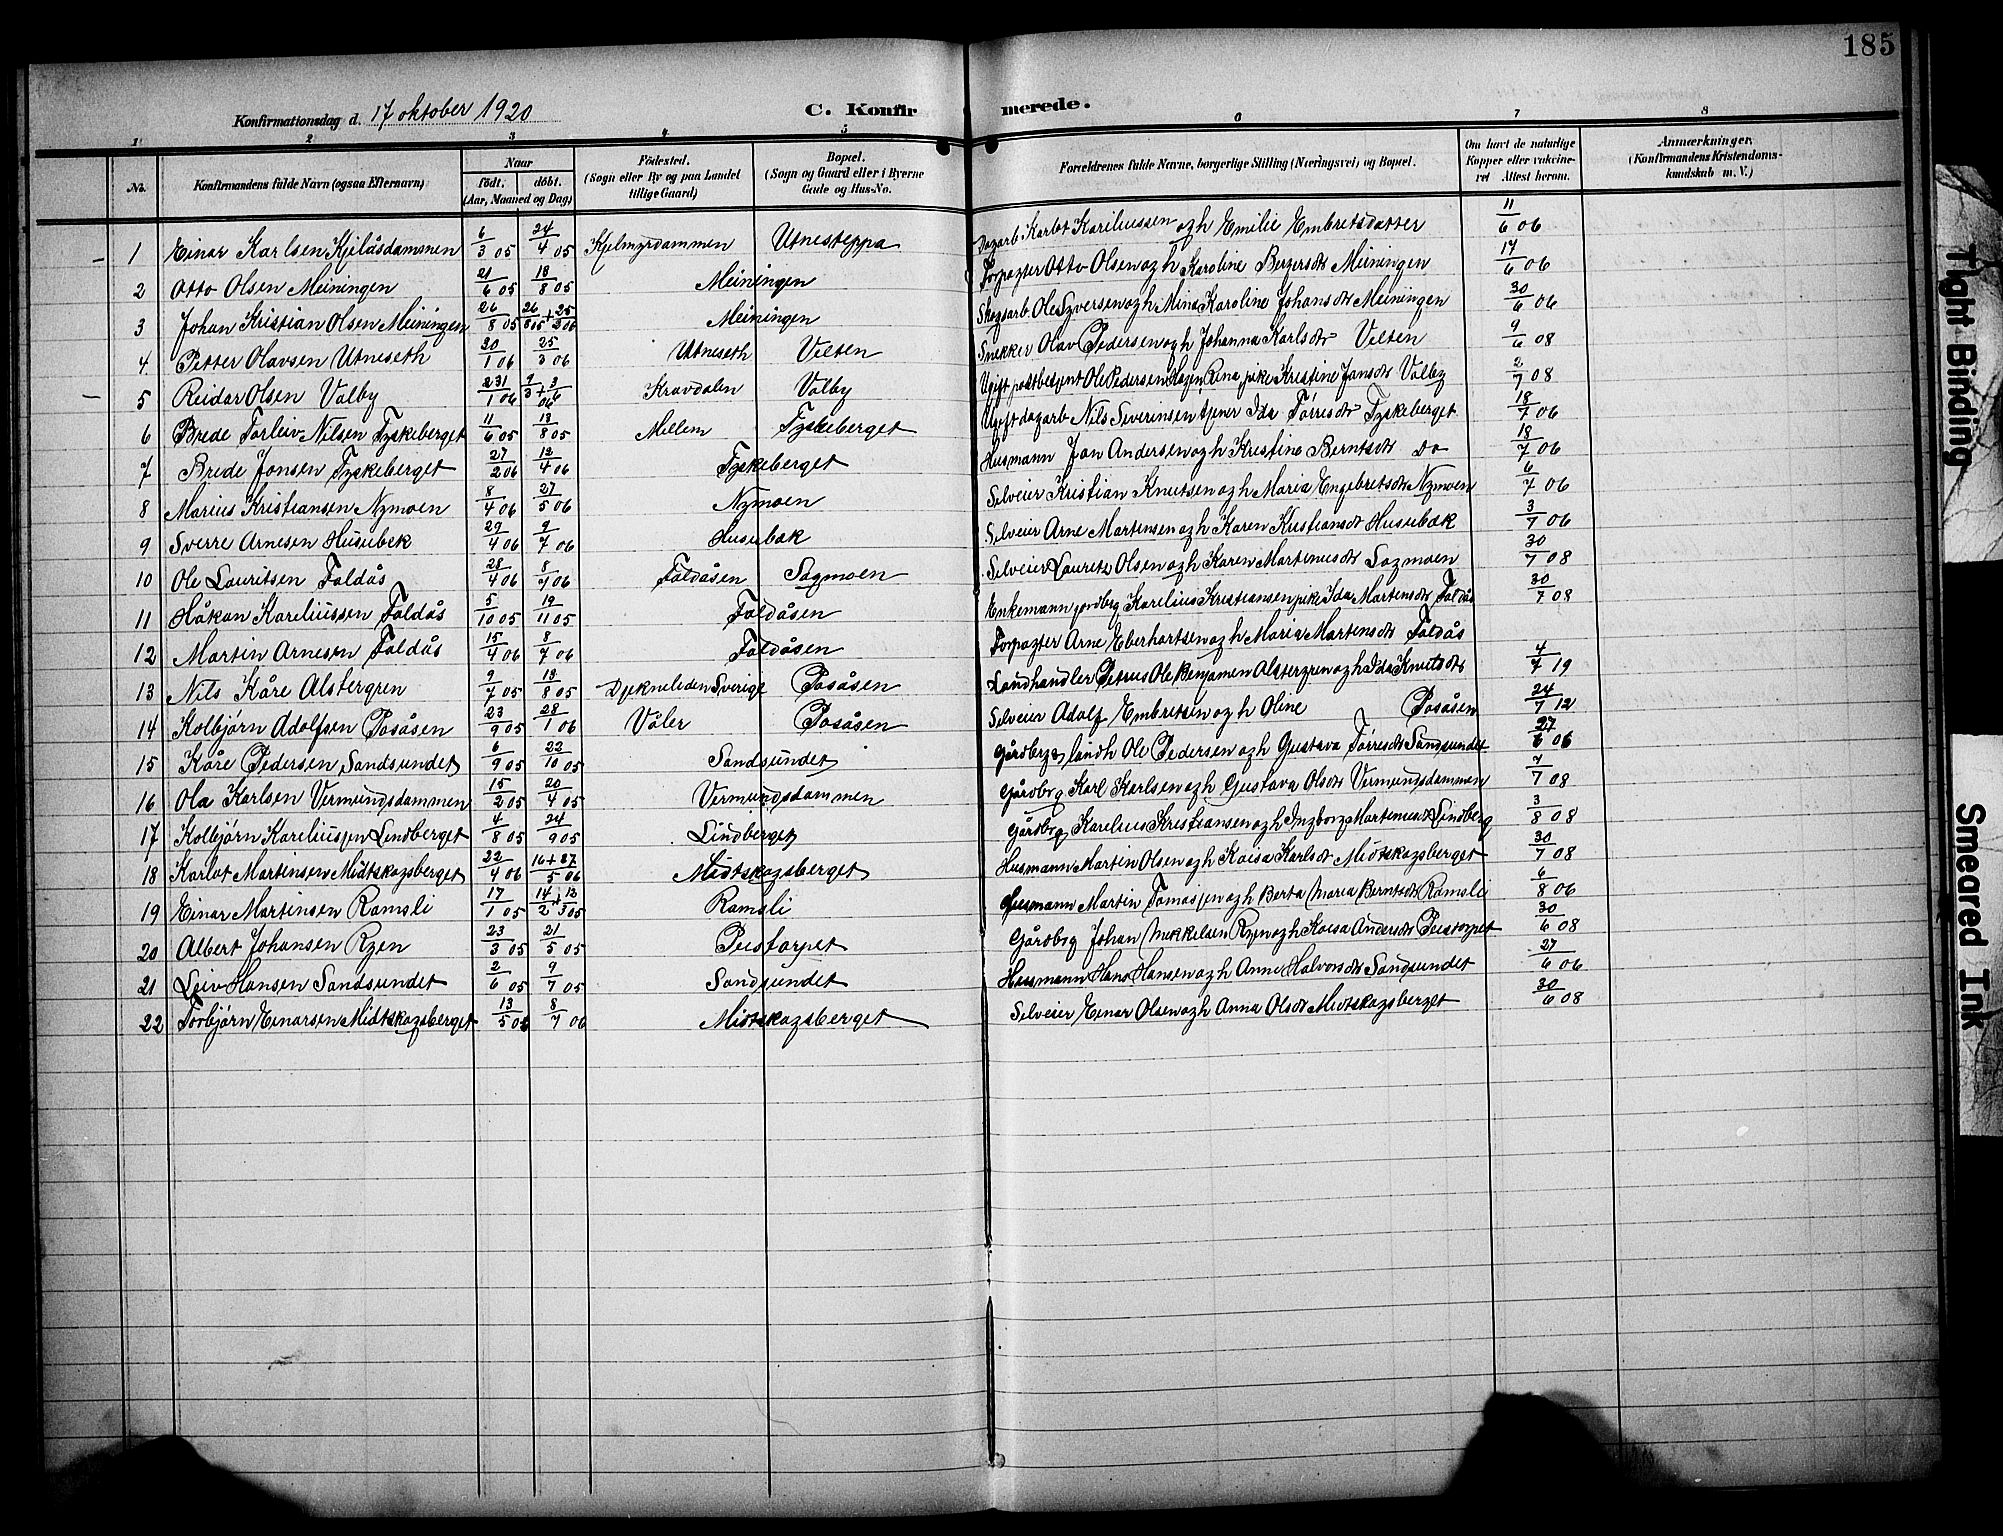 185
Konfirmationsdag d. 17 oktober 1920 C. Konfirmerede.
1 2 3 4 5 6 7 8
No. Konfirmandens fulde Navn (ogsaa Efternavn) Naar födt. döbt. (Aar, Maaned og Dag) Födested. (Sogn eller By og paa Landet tillige Gaard) Bopæl. (Sogn og Gaard eller i Byerne Gade og Hus-No. Forældrenes fulde Navne, borgerlige Stilling (Næringsvei) og Bopæl. Om havt de naturlige Kopper eller vakcineret. Attest herom. Anmærkninger. (Konfirmandens Kristendomskundskab m. V.)
1 Einar Karlsen Kjelåsdammen 6/3 05 24/4 05 Kjelmyrdammen Utnesteppa Dagarb. Karlot Kareliussen ogh Emilie Embretsdatter 11/6 06
2 Otto Olsen Meiningen 21/6 05 18/8 05 Meiningen Forpagter Otto Olsen ogh Karoline Bergersdtr Meiningen 17/6 06
3 Johan Kristian Olsen Meiningen 26/8 05 Meiningen Skogsarb Ole Syversen ogh Mina Karoline Johansdtr Meiningen 30/6 06
4 Petter Olavsen Utneseth 30/1 06 25/3 06 Utneseth Velten Snekker Olav Pedersen ogh Johanna Karlsdtr Velten 9/6 08
5 Reidar Olsen Valby Kravdalen Valby Ugift postbetjent Ole Pedersen Hagen Rena, pike Kristine Jansdtr Valby 2/7 08
6 Brede Torleiv Nilsen Tyskeberget 11/6 05 13/8 05 Mellem Tyskeberget Ugift dagarb Nils Severinsen tjener Ida Törresdtr Tyskeberget 18/7 06
7 Brede Jonsen Tyskeberget 27/2 06 12/4 06 Tyskeberget Husmann Jon Andersen ogh Kristine Berntsdtr Do 18/7 06
8 Marius Kristiansen Nymoen 8/4 06 27/5 06 Nymoen Selveier Kristian Knutsen ogh Maria Engebretsdtr Nymoen 6/7 06
9 Sverre Arnesen Husubek 29/4 06 9/7 06 Husubæk Selveier Arne Martensen ogh Karen Kristiansdtr Husubæk 3/7 06
10 Ole Lauritsen Faldås 28/4 06 8/7 06 Faldåsen Sagmoen Selveier Lauritz Olsen ogh Karen Martenusdtr Sagmoen 30/7 08
11 Håkan Kareliussen Faldås 5/10 05 19/11 05 Faldåsen Enkemann gårdbrg Karelius Kristiansen pike Ida Martensdtr Faldås 30/7 08
12 Martin Arnesen Faldås 15/4 06 8/7 06 Faldåsen Forpagter Arne Eberhartsen ogh Maria Martensdtr Faldås
13 Nils Kåre Alstergren 9/7 05 13/8 05 Djekneliden Sverige Posåsen Landhandler Petrus Ole Benjamen Alstergren ogh Ida Knutsdtr 4/7 19
14 Kolbjörn Adolfsen Posåsen 23/9 05 28/1 06 Våler Posåsen Selveier Adolf Embretsen ogh Oline Posåsen 24/7 12
15 Kåre Pedersen Sandsundet 6/9 05 22/10 05 Sandsundet Gårdbrg landh Ole Pedersen ogh Gustava Törresdtr Sandsundet 27/6 06
16 Ola Karlsen Vermundsdammen 15/2 05 20/4 05 Vermundsdammen Gårdbrg Karl Karlsen ogh Gustava Olsdtr Vermundsdammen 7/7 08
17 Kolbjörn Kareliussen Lindberget 4/8 05 24/9 05 Lindberget Gårdbrg Karelius Kristiansen ogh Ingborg Martenusdtr Lindberg 3/8 08
18 Karlot Martinsen Midtskogsberget 22/4 06 16+27/5 06 Midtskogsberget Husmann Martin Olsen ogh Kaisa Karlsdtr Midtskogsberget 30/7 08
19 Einar Martinsen Ramsli 17/1 05 14/2+12/3 05 Ramsli Husmann Martin Tomassen ogh Berta Maria Berntsdtr Ramsli 6/8 06
20 Albert Johansen Ryen 23/3 05 21/5 05 Peistorpet Gårdbrg Johan Mikkelsen Ryen ogh Kaisa Andersdtr Peistorpet 30/6 08
21 Leiv Hansen Sandsundet 2/6 05 9/7 05 Sandsundet Husmann Hans Hansen ogh Anne Halvorsdtr Sandsundet 27/6 06
22 Torbjörn Einarsen Midtskogsberget 13/5 06 8/7 06 Midtskogsberget Selveier Einar Olsen ogh Anna Olsdtr Midtskogsberget 30/6 08
Tight Binding
Smeared Ink